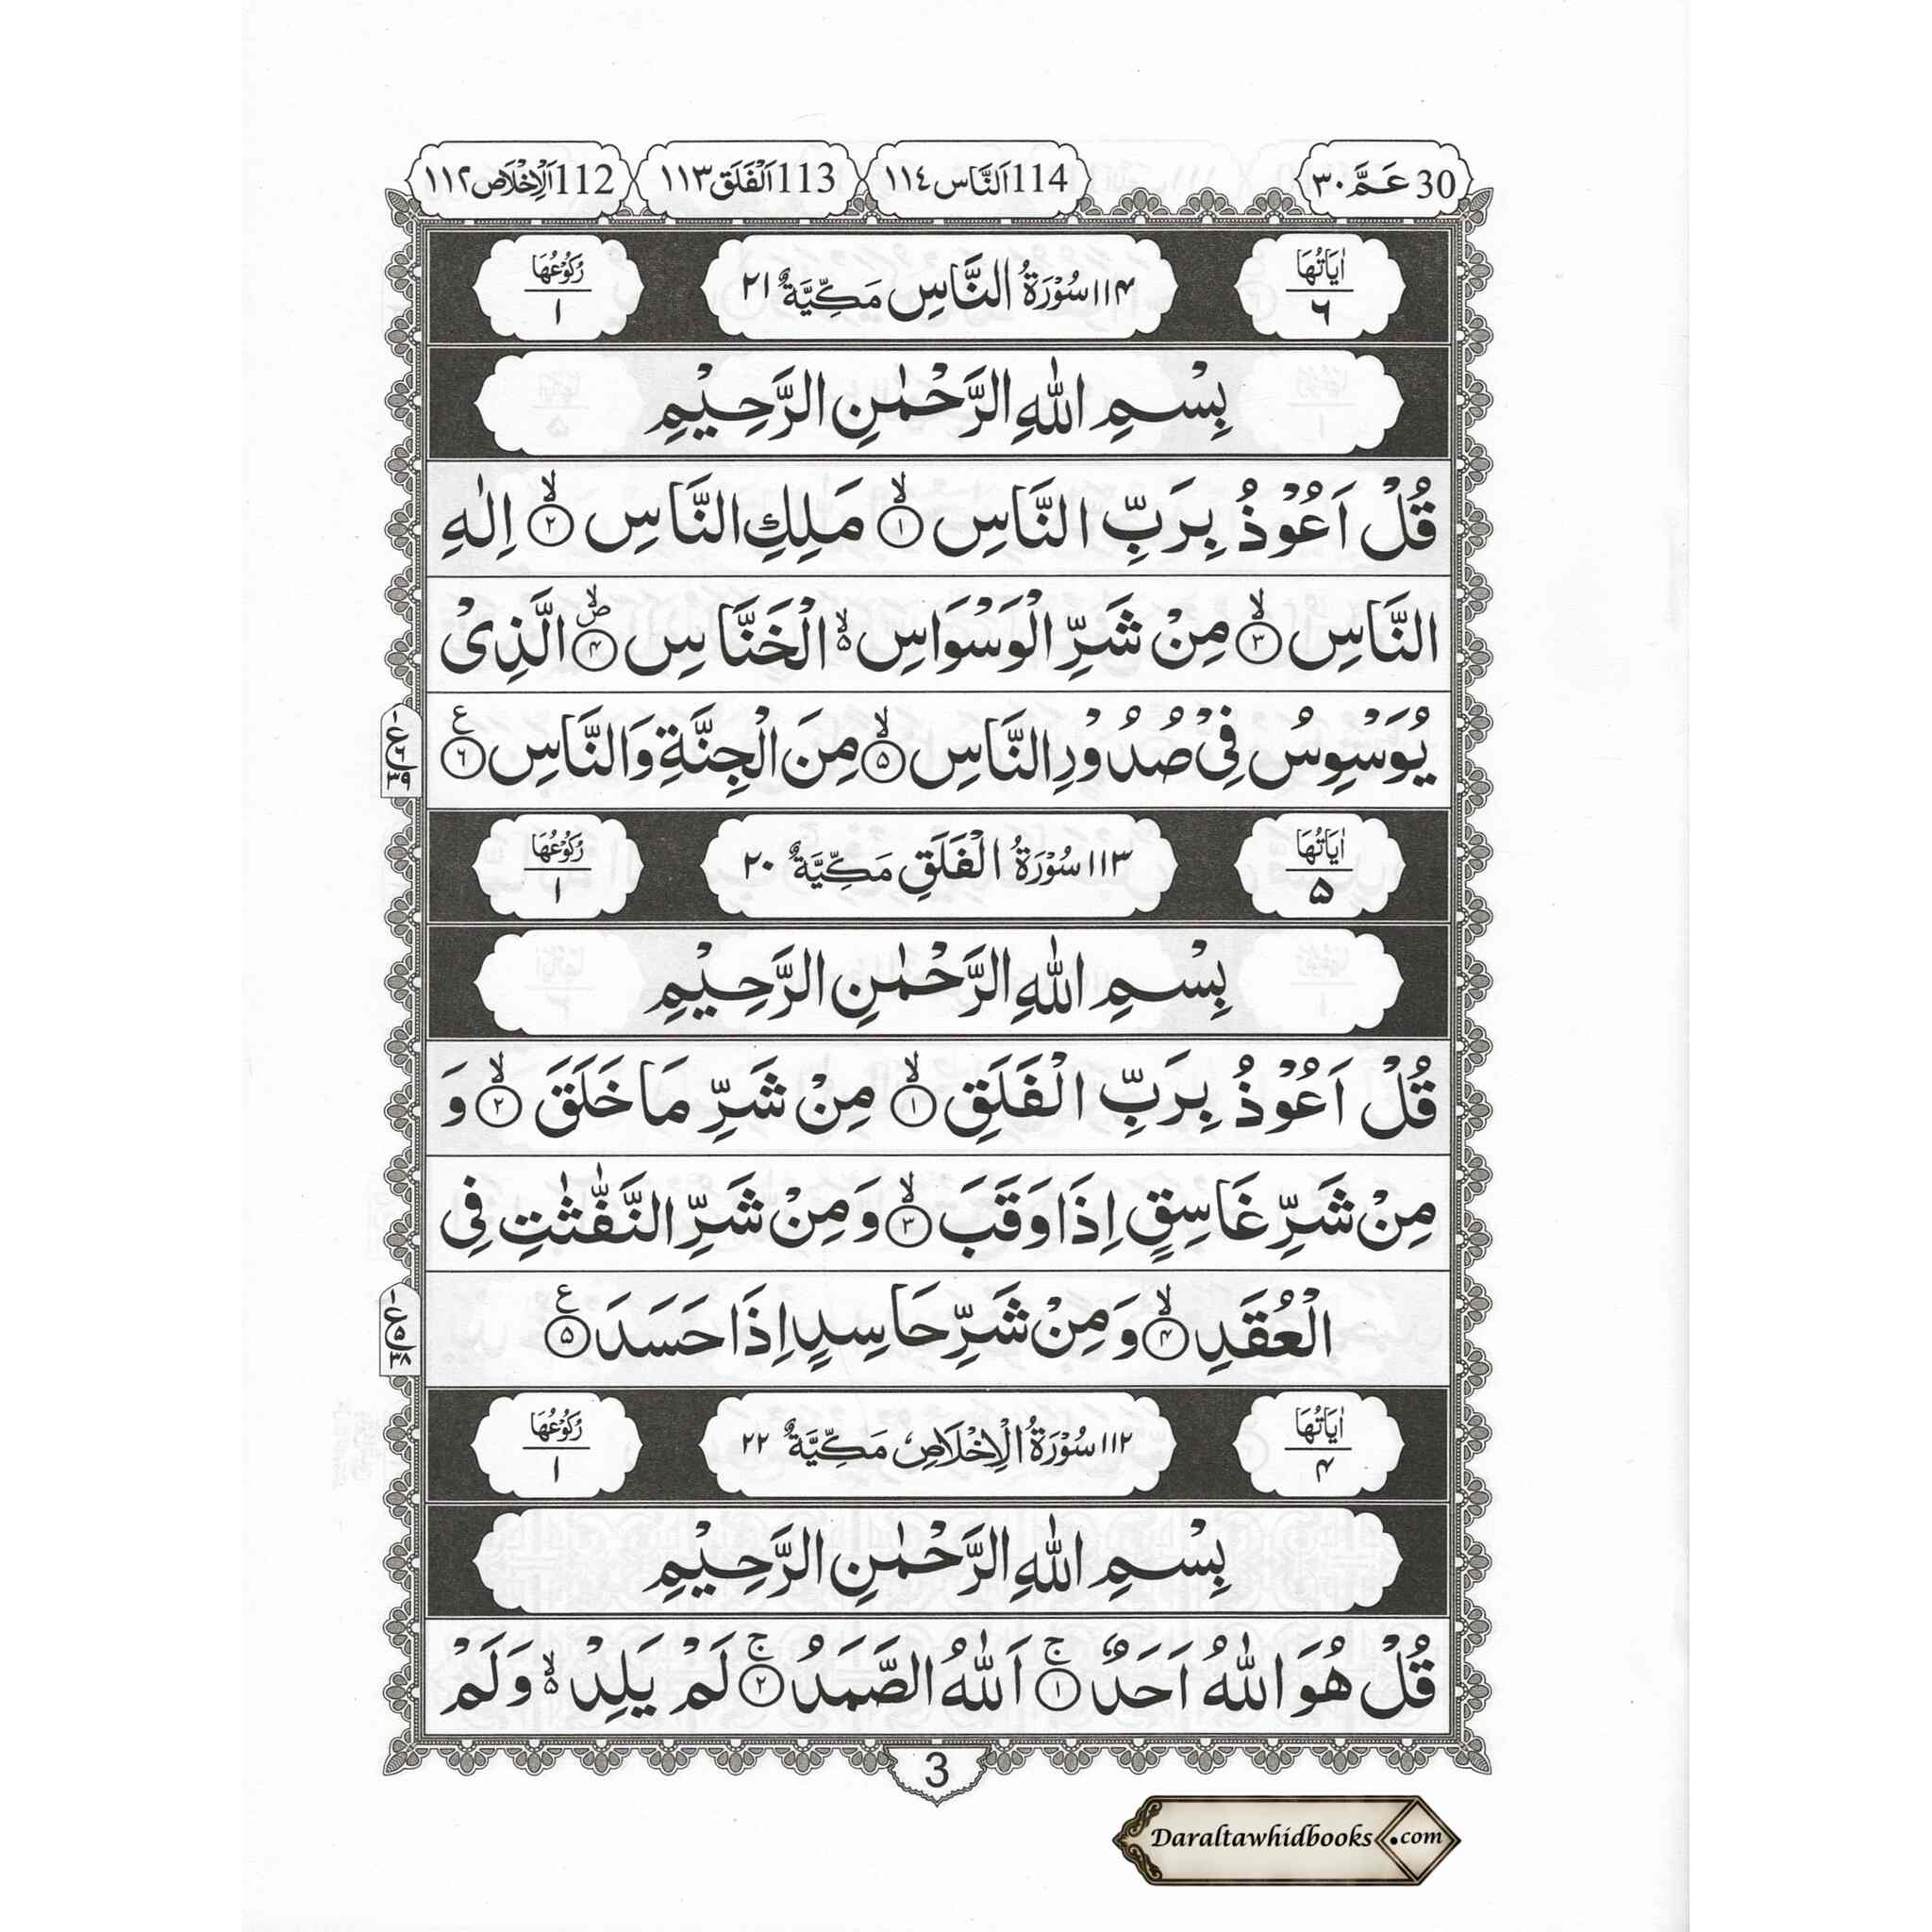 30 عَمَّ ٣٠ 114 اَلنَّاس ١١٤ 113 اَلْفَلَق ١١٣ 112 اَلْاِخْلَاص ١١٢
اٰيَاتُهَا ٦ ١١۴ سُوْرَةُ النَّاسِ مَكِّيَّةٌ ٢١ رُكُوْعُهَا ١
بِسْمِ اللّٰهِ الرَّحْمٰنِ الرَّحِيْمِ
قُلْ اَعُوْذُ بِرَبِّ النَّاسِ ۙ‏﴿۱﴾ مَلِكِ النَّاسِ ۙ‏﴿۲﴾ اِلٰهِ
النَّاسِ ۙ‏﴿۳﴾ مِنْ شَرِّ الْوَسْوَاسِ ۵ۙ الْخَنَّاسِ ۪ۙ‏﴿۴﴾ الَّذِىْ
يُوَسْوِسُ فِىْ صُدُوْرِ النَّاسِ ۙ‏﴿۵﴾ مِنَ الْجِنَّةِ وَالنَّاسِ ﴿۶﴾ ع
١ ع ٦ ٣٩
اٰيَاتُهَا ۵ ١١٣ سُوْرَةُ الْفَلَقِ مَكِّيَّةٌ ٢٠ رُكُوْعُهَا ١
بِسْمِ اللّٰهِ الرَّحْمٰنِ الرَّحِيْمِ
قُلْ اَعُوْذُ بِرَبِّ الْفَلَقِ ۙ‏﴿۱﴾ مِنْ شَرِّ مَا خَلَقَ ۙ‏﴿۲﴾ وَ
مِنْ شَرِّ غَاسِقٍ اِذَا وَقَبَ ۙ‏﴿۳﴾ وَمِنْ شَرِّ النَّفّٰثٰتِ فِى
الْعُقَدِ ۙ‏﴿۴﴾ وَمِنْ شَرِّ حَاسِدٍ اِذَا حَسَدَ ﴿۵﴾ ع
١ ع ۵ ٣٨
اٰيَاتُهَا ۴ ١١٢ سُوْرَةُ الْاِخْلَاصِ مَكِّيَّةٌ ٢٢ رُكُوْعُهَا ١
بِسْمِ اللّٰهِ الرَّحْمٰنِ الرَّحِيْمِ
قُلْ هُوَ اللّٰهُ اَحَدٌ ۚ‏﴿۱﴾ اَللّٰهُ الصَّمَدُ ۚ‏﴿۲﴾ لَمْ يَلِدْ ۵ۙ وَلَمْ
3
Daraltawhidbooks.com